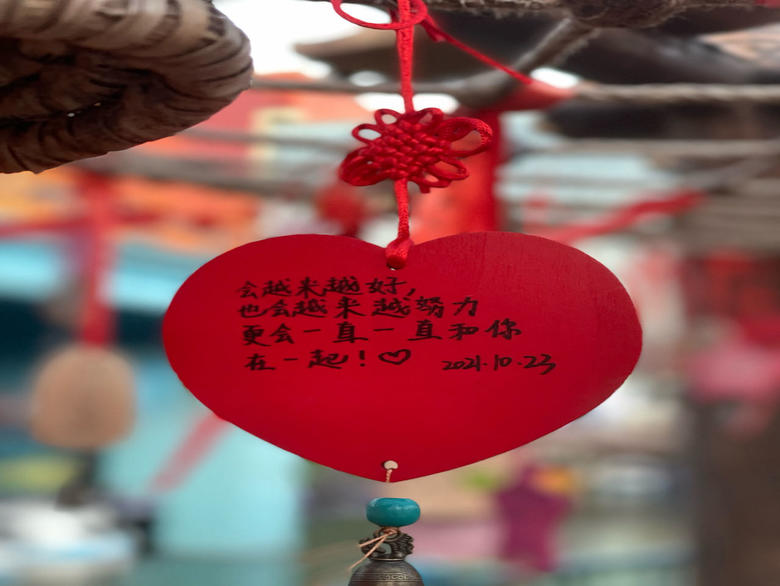 会越来越好,
也会越来越努力
更会一直一直和你
在一起!♡ 2021.10.23